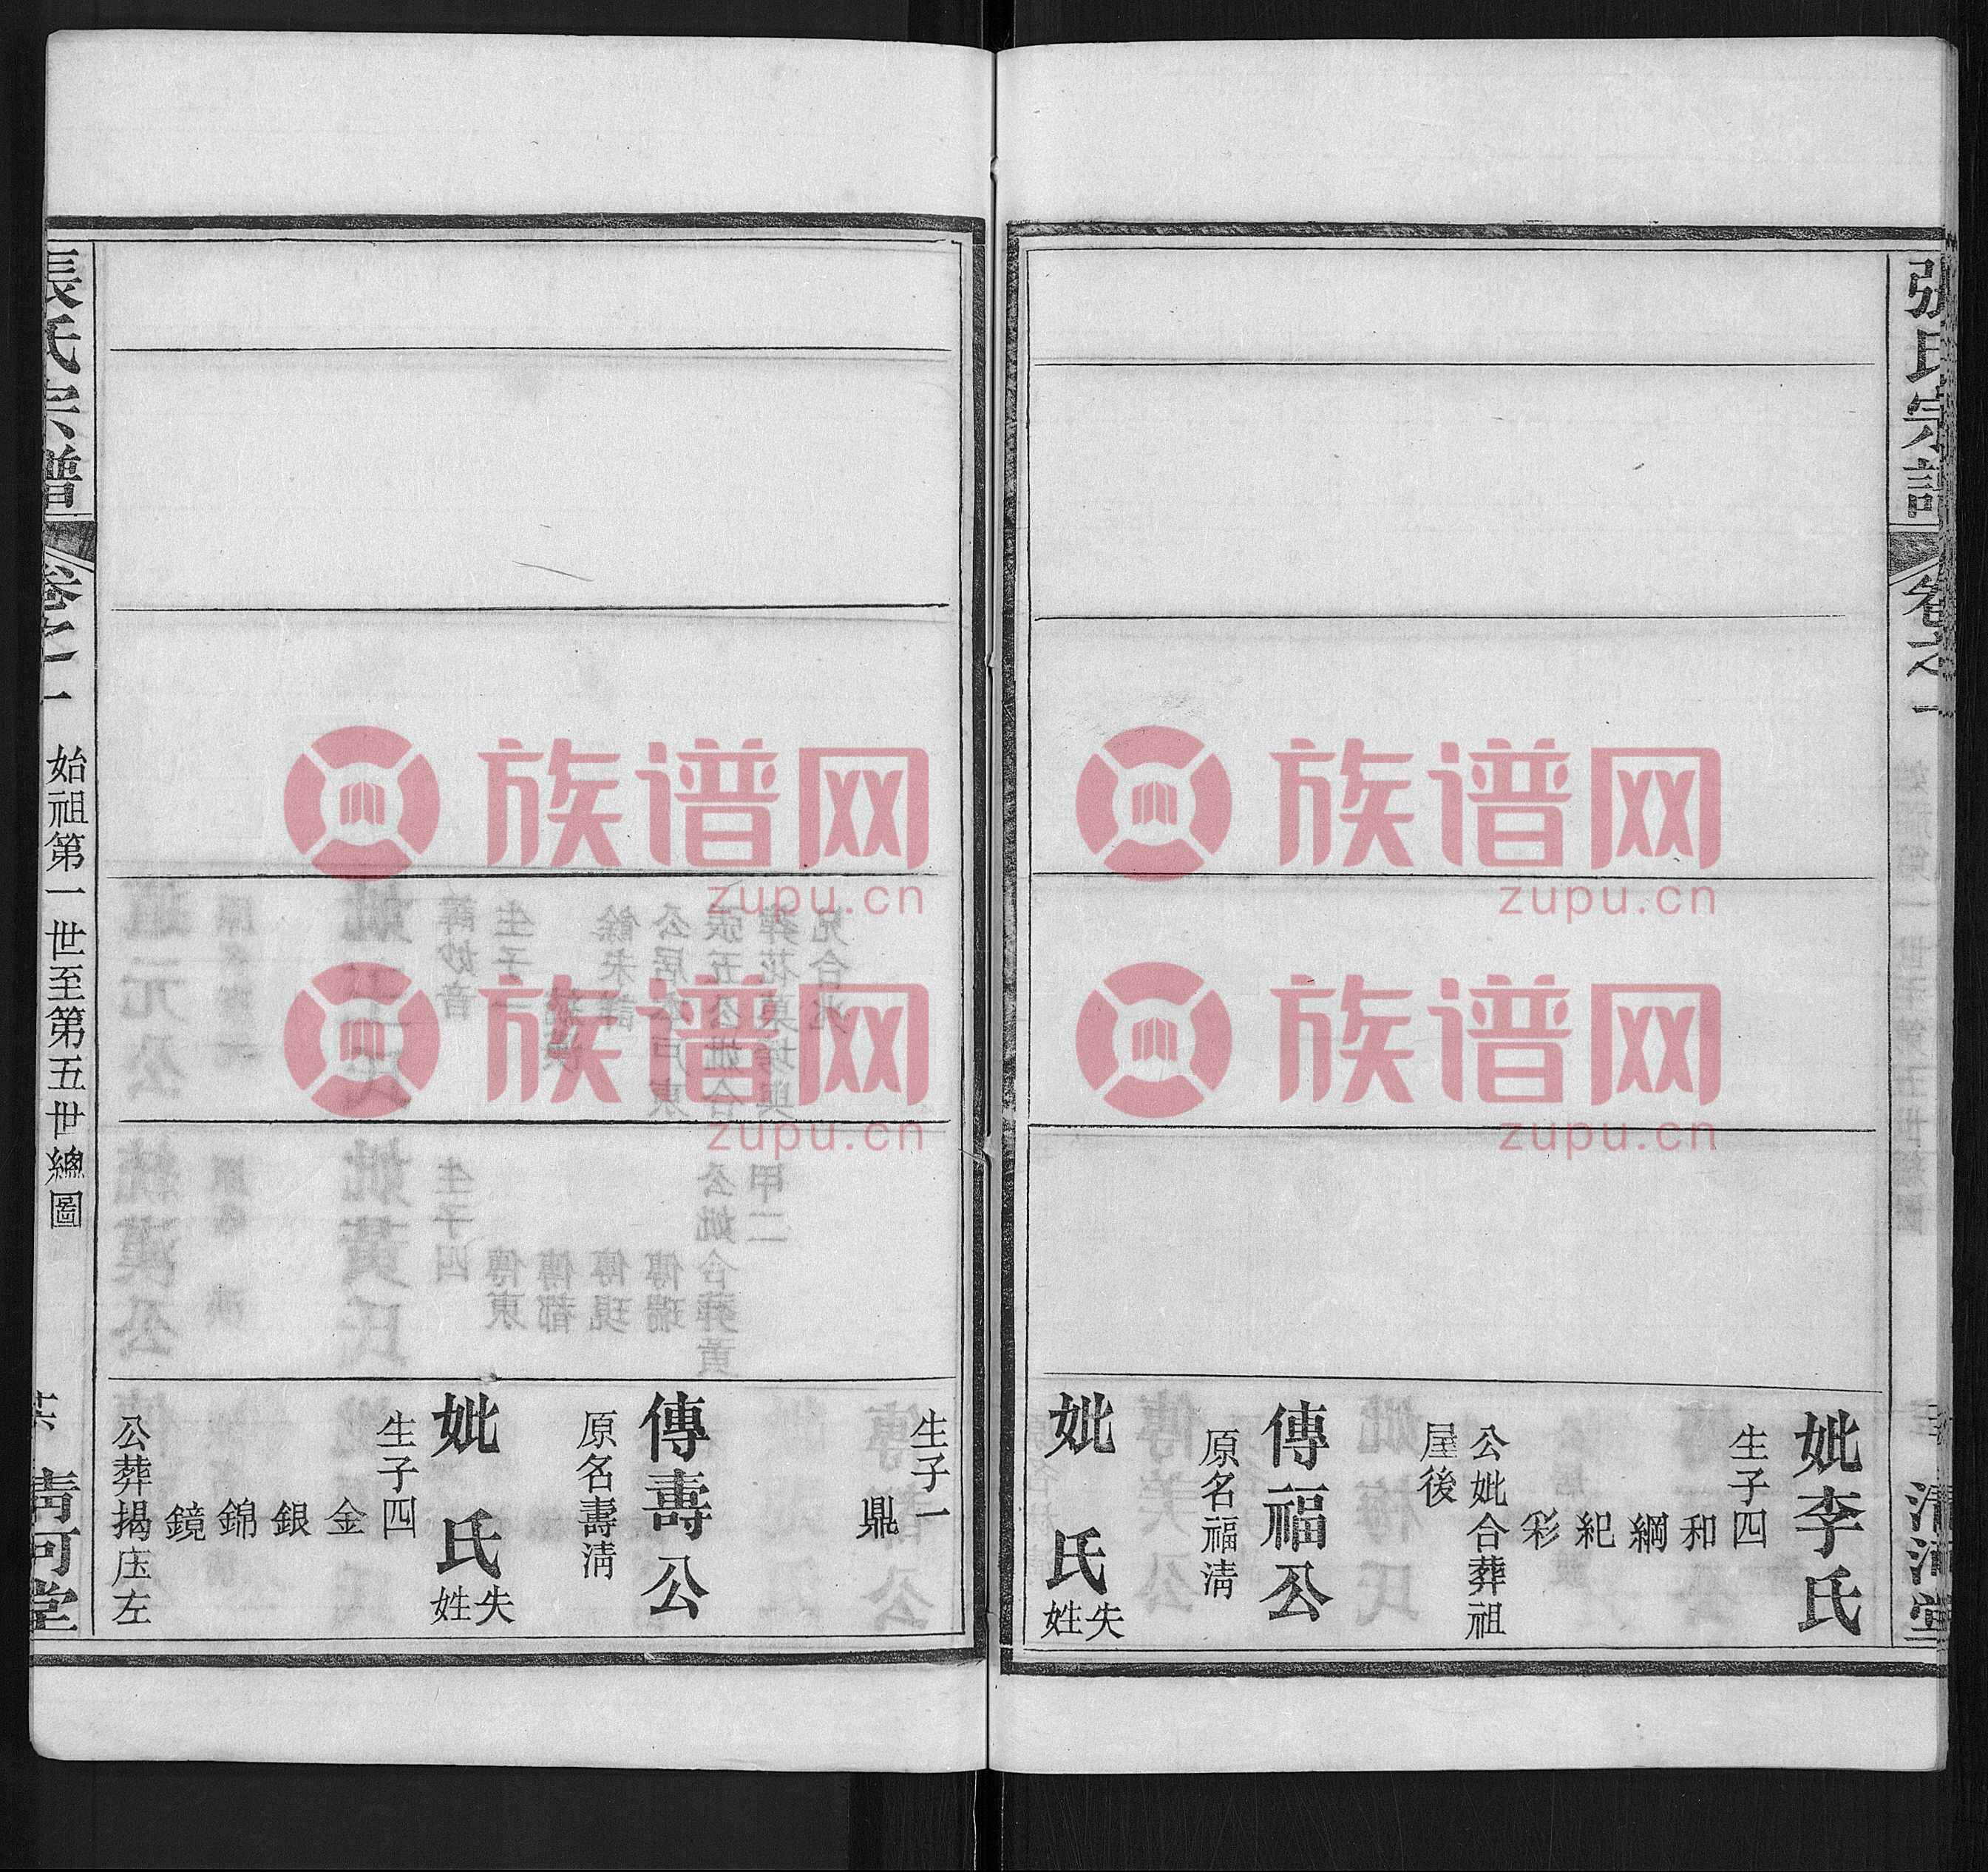 張氏宗譜
卷之一
清河堂
妣李氏
生子四
和
綱
紀
彩
公妣合葬祖
屋後
傳福公
原名福淸
妣 氏失姓
生子一
鼎
傳壽公
原名壽淸
妣 氏失姓
生子四
金
銀
錦
鏡
公葬揭庒左
張氏宗譜
卷之一
始祖第一世至第五世總圖
淸河堂
族谱网
zupu.cn
族谱网
zupu.cn
族谱网
zupu.cn
族谱网
zupu.cn